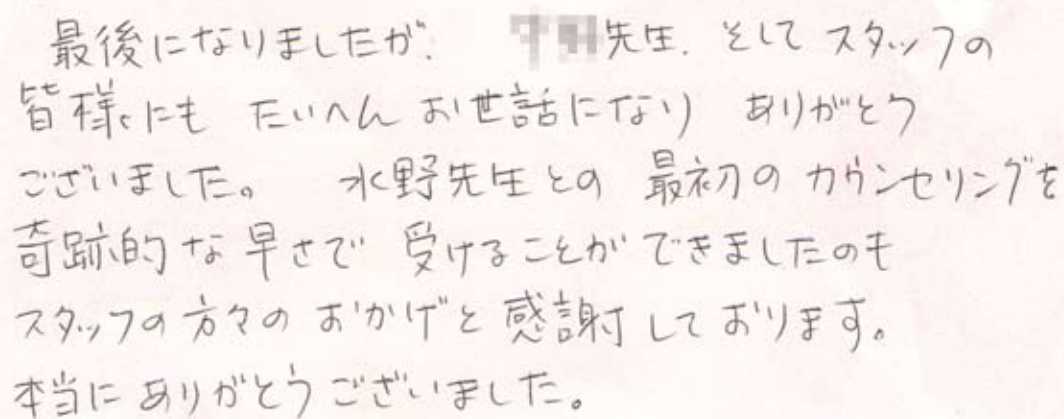 最後になりましたが、先生、そしてスタッフの
皆様にも たいへんお世話になり ありがとう
ございました。 水野先生との 最初のカウンセリングを
奇跡的な早さで 受けることができましたのも
スタッフの方々の おかげと感謝しております。
本当にありがとうございました。